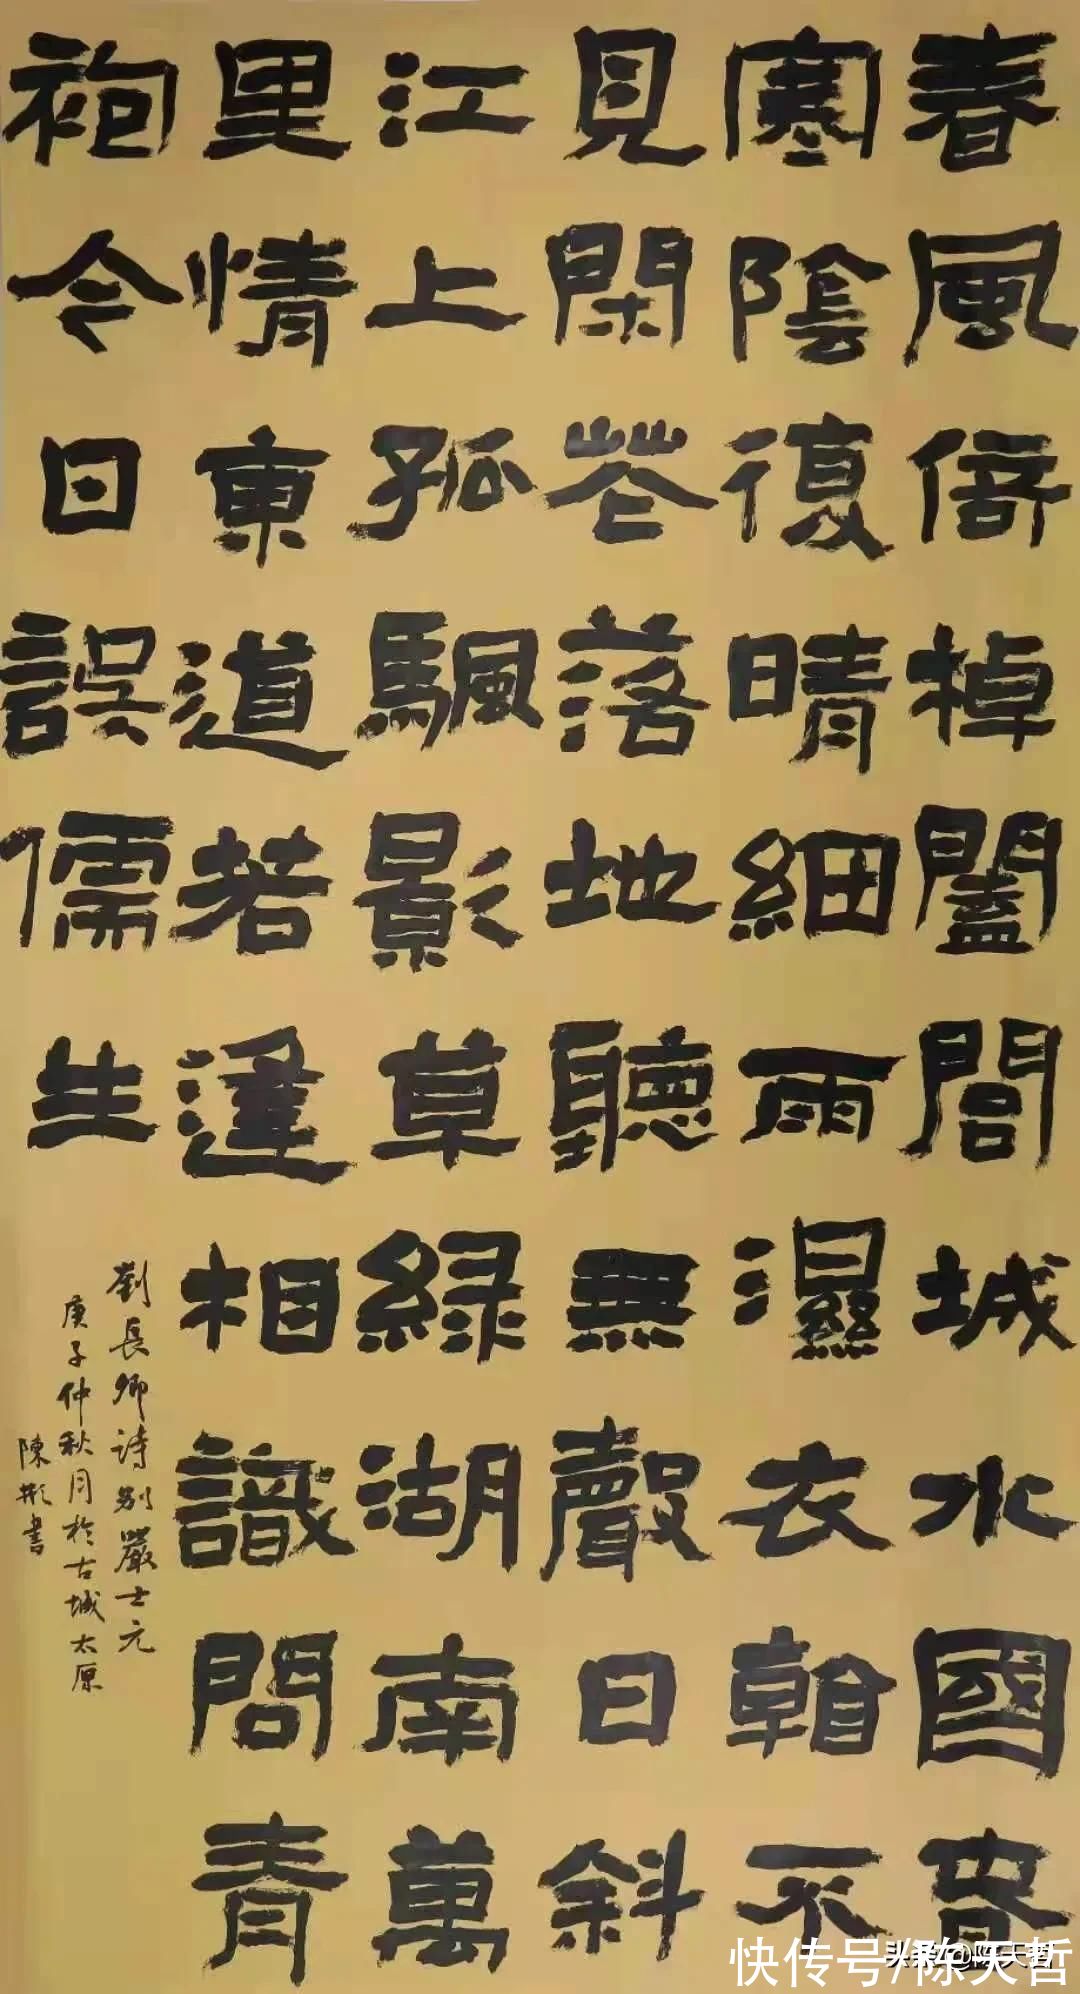 春風倚棹闔閭城水國春
寒陰復晴細雨濕衣看不
見閑花落地聽無聲日斜
江上孤颿影草綠湖南萬
里情東道若逢相識問青
袍今日誤儒生
劉長卿詩別嚴士元
庚子仲秋月於古城太原
陳彬書
头条@陈天哲
快传号/陈天哲